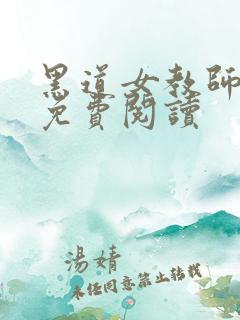 黑道女教師
免費閱讀
湯婧
未经同意禁止转载